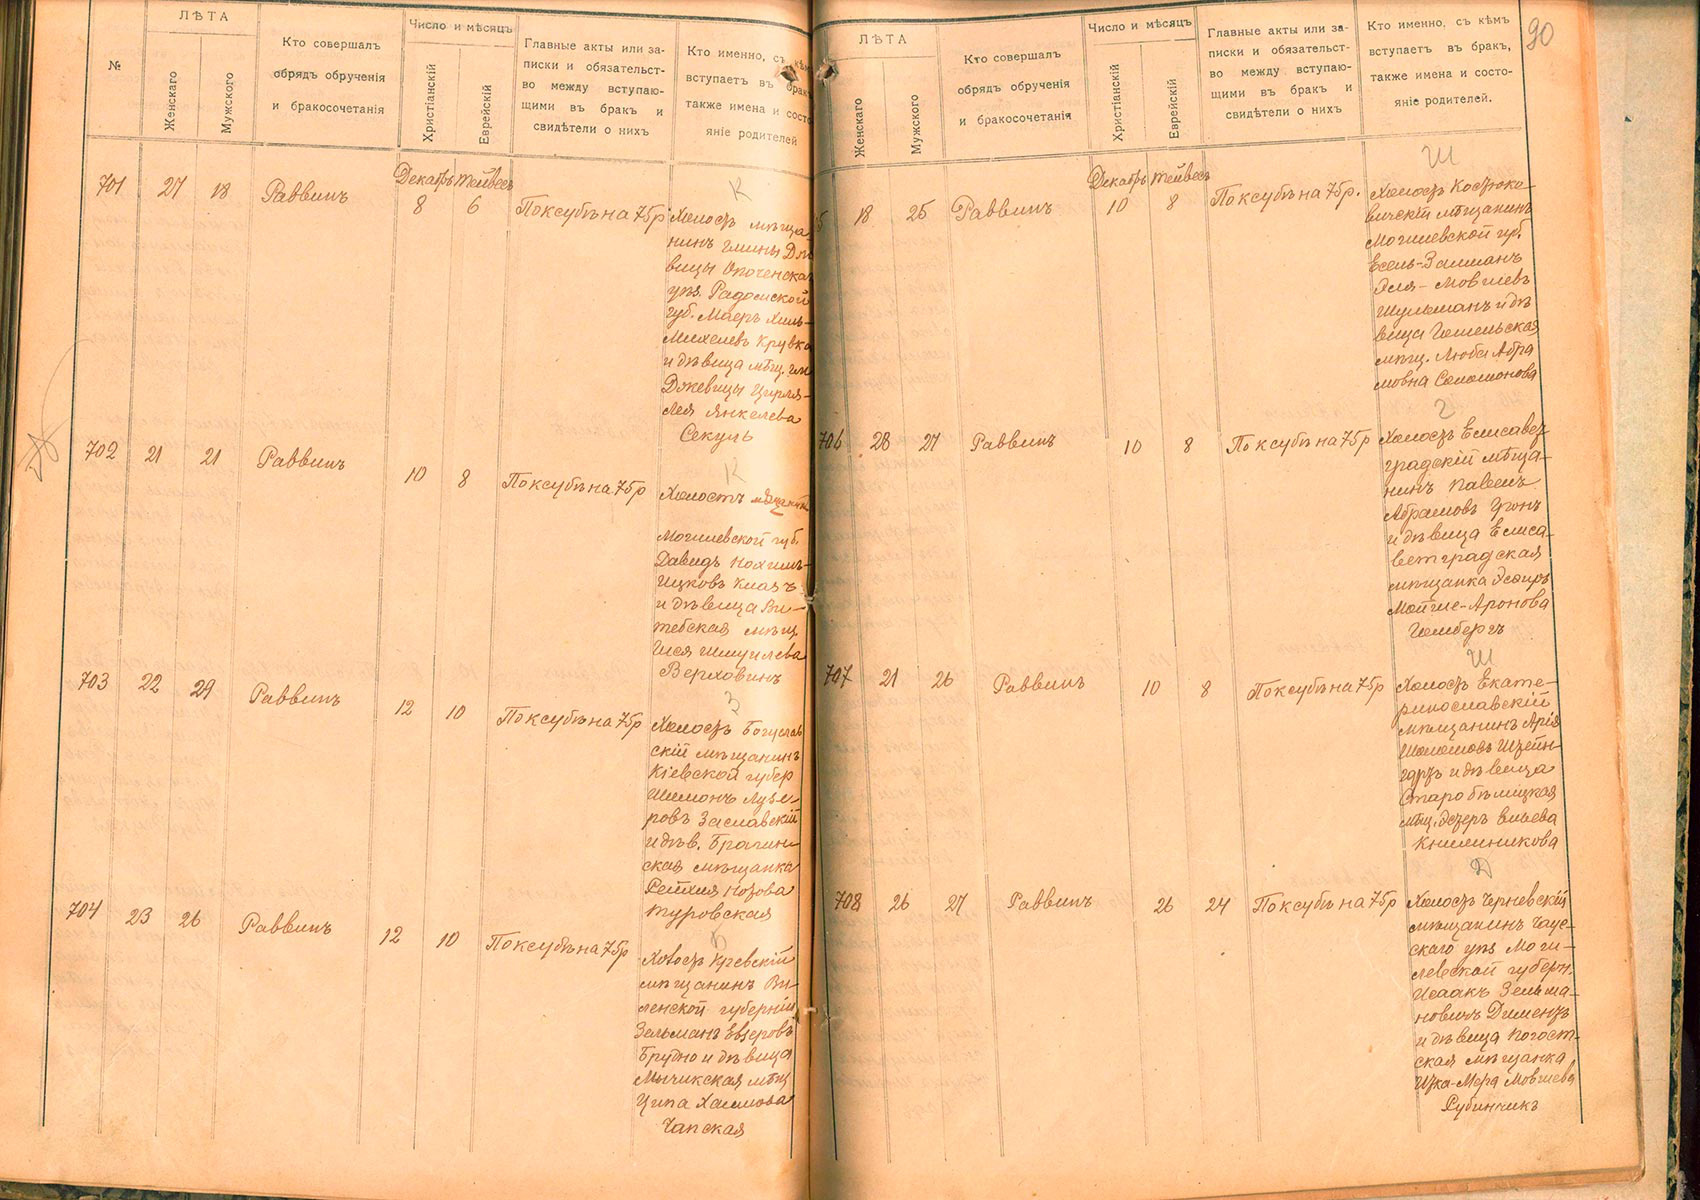 №
ЛѢТА
Женскаго
Мужского
Кто совершалъ
обрядъ обрученія
и бракосочетанія
Число и мѣсяцъ
Христіанскій
Еврейскій
Главные акты или за-
писки и обязательст-
во между вступаю-
щими въ бракъ и
свидѣтели о нихъ
Кто именно, съ кѣмъ
вступаетъ въ бракъ
также имена и состо
яніе родителей
701 27 18 Раввинъ Декабрь Тейвесъ
8 6 По ксубѣ на 75р
К
Холостъ мѣща-
нинъ гмины Дж
вицы Опоченска
уѣз. Радомской
губ. Маеръ Хиль-
Михелевъ Крувка
и дѣвица мѣщ. гм
Джевицы Цирля-
Лея Янкелева
Секуль
702 21 21 Раввинъ 10 8 По ксубѣ на 75р
К
Холостъ мѣщанинъ
Могилевской губ.
Давидъ Нохимъ-
Ицковъ
и дѣвица Ви-
тебская мѣщ.
Шмуилева
Верховинъ
703 22 29 Раввинъ 12 10 По ксубѣ на 75р
З
Холостъ Богуслав
скій мѣщанинъ
Кіевской губер
Шимонъ Лузе-
ровъ Заславскій
и дѣв. Брагин-
ская мѣщанка
Туровская
704 23 26 Раввинъ 12 10 По ксубѣ на 75р
Б
Холостъ Кревскій
мѣщанинъ Ви-
ленской губерніи
Зельманъ
Брудно и дѣвица
мѣщ
Ципа Хаимова
Чапская
90
ЛѢТА
Женскаго
Мужского
Кто совершалъ
обрядъ обрученія
и бракосочетанія
Число и мѣсяцъ
Христіанскій
Еврейскій
Главные акты или за-
писки и обязательст-
во между вступаю-
щими въ бракъ и
свидѣтели о нихъ
Кто именно, съ кѣмъ
вступаетъ въ бракъ,
также имена и состо-
яніе родителей.
5 18 25 Раввинъ Декабрь Тейвесъ
10 8 По ксубѣ на 75р.
Ш
Холостъ Костюко-
вичскій мѣщанинъ
Могилевской губ.
Есель-Залманъ
Эля-Мовшевъ
Шульманъ и дѣ
вица Гомельская
мѣщ. Люба Абра
мовна Соломонова
706 28 27 Раввинъ 10 8 По ксубѣ на 75р
Г
Холостъ Елисавет
градскій мѣща-
нинъ Павелъ
Абрамовъ
и дѣвица Елиса-
ветградская
мѣщанка Эсфирь
Мойше-Аронова
707 21 26 Раввинъ 10 8 По ксубѣ на 75р
Ш
Холостъ Екате-
ринославскій
мѣщанинъ Арія
Шоломовъ Штейн-
гартъ и дѣвица
Старобѣлицкая
мѣщ.
708 26 27 Раввинъ 26 24 По ксубѣ на 75р
Д
Холостъ Черневскій
мѣщанинъ Чаус-
скаго уѣз Моги-
левской губерн.
Исаакъ Зельма-
новичъ
и дѣвица Погост-
ская мѣщанка
Мера Мовшева
Рубинчикъ